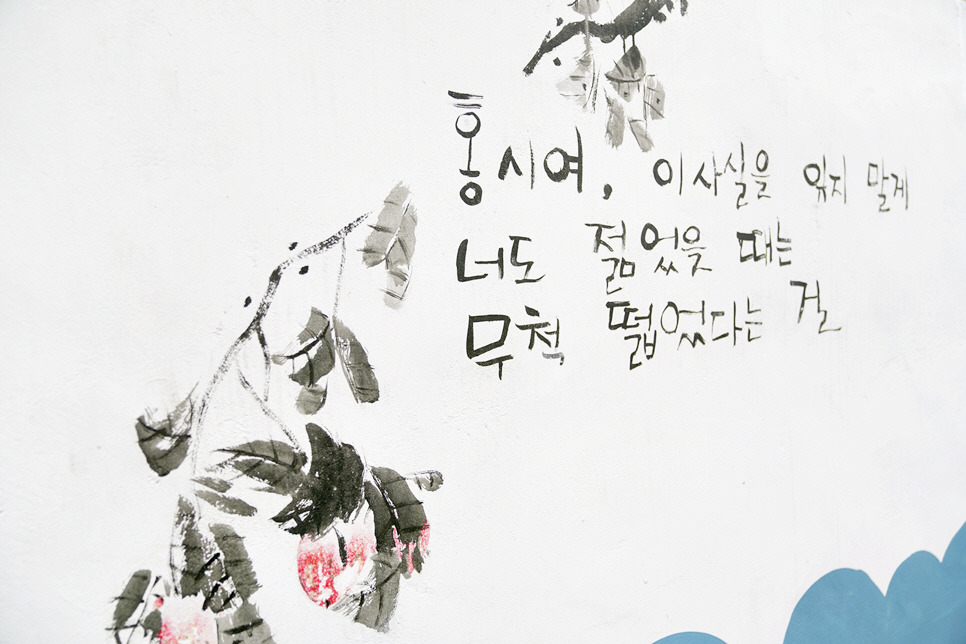 홍시여, 이사실을 잊지 말게
너도 젊었읏 때는
무척 떫었다는 걸